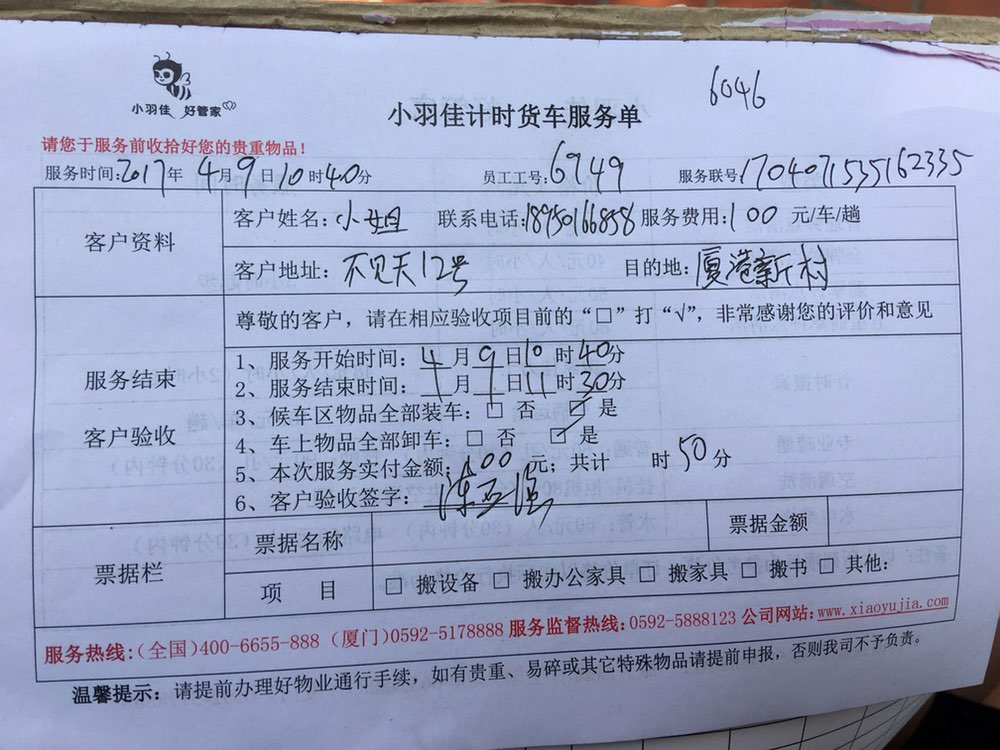 小羽佳 好管家
6046
小羽佳计时货车服务单
请您于服务前收拾好您的贵重物品!
服务时间:2017年 4月 9日 10时40分 员工工号:6949 服务联号:1704071535162335
客户资料 客户姓名:小姐 联系电话:18950166858 服务费用:100 元/车/趟
客户地址:不见天12号 目的地:厦港新村
服务结束
客户验收
尊敬的客户,请在相应验收项目前的“□”打“√”,非常感谢您的评价和意见
1、服务开始时间:4月9日10时40分
2、服务结束时间:月 日11时30分
3、候车区物品全部装车:□ 否 ☑ 是
4、车上物品全部卸车:□ 否 ☑ 是
5、本次服务实付金额:100元;共计 时50分
6、客户验收签字:
票据栏 票据名称 票据金额
项 目 □ 搬设备 □ 搬办公家具 □ 搬家具 □ 搬书 □ 其他:
服务热线:(全国)400-6655-888 (厦门)0592-5178888 服务监督热线:0592-5888123 公司网站:www.xiaoyujia.com
温馨提示:请提前办理好物业通行手续,如有贵重、易碎或其它特殊物品请提前申报,否则我司不予负责。